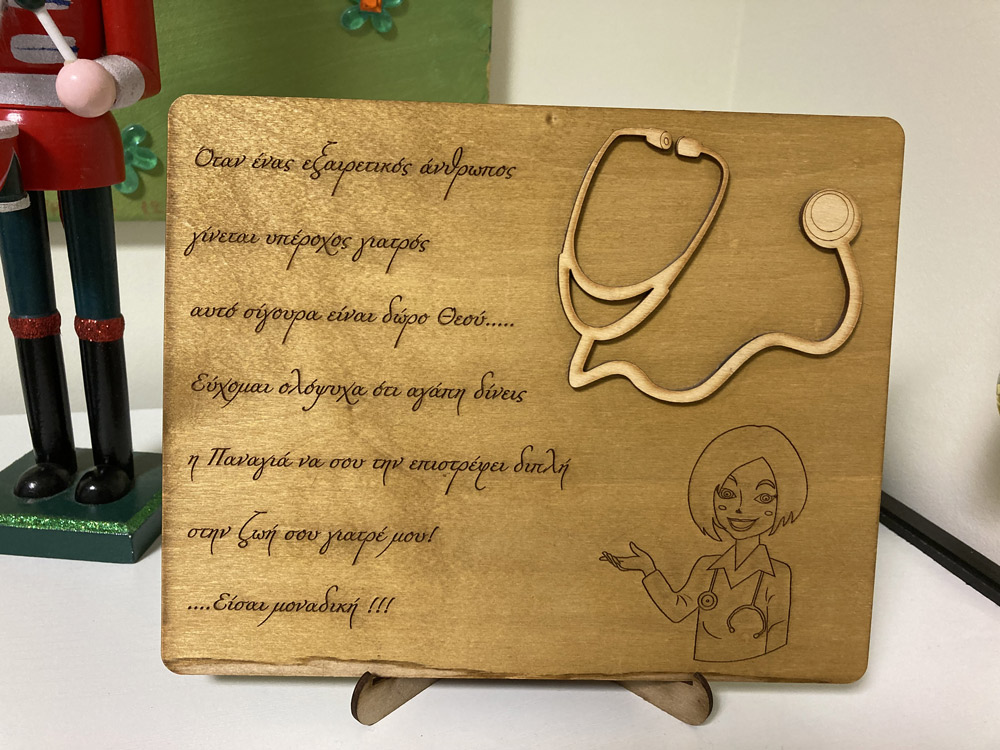 Όταν ένας εξαιρετικός άνθρωπος
γίνεται υπέροχος γιατρός
αυτό σίγουρα είναι δώρο Θεού.....
Εύχομαι ολόψυχα ότι αγάπη δίνεις
η Παναγιά να σου την επιστρέψει διπλή
στην ζωή σου γιατρέ μου!
....Είσαι μοναδική !!!